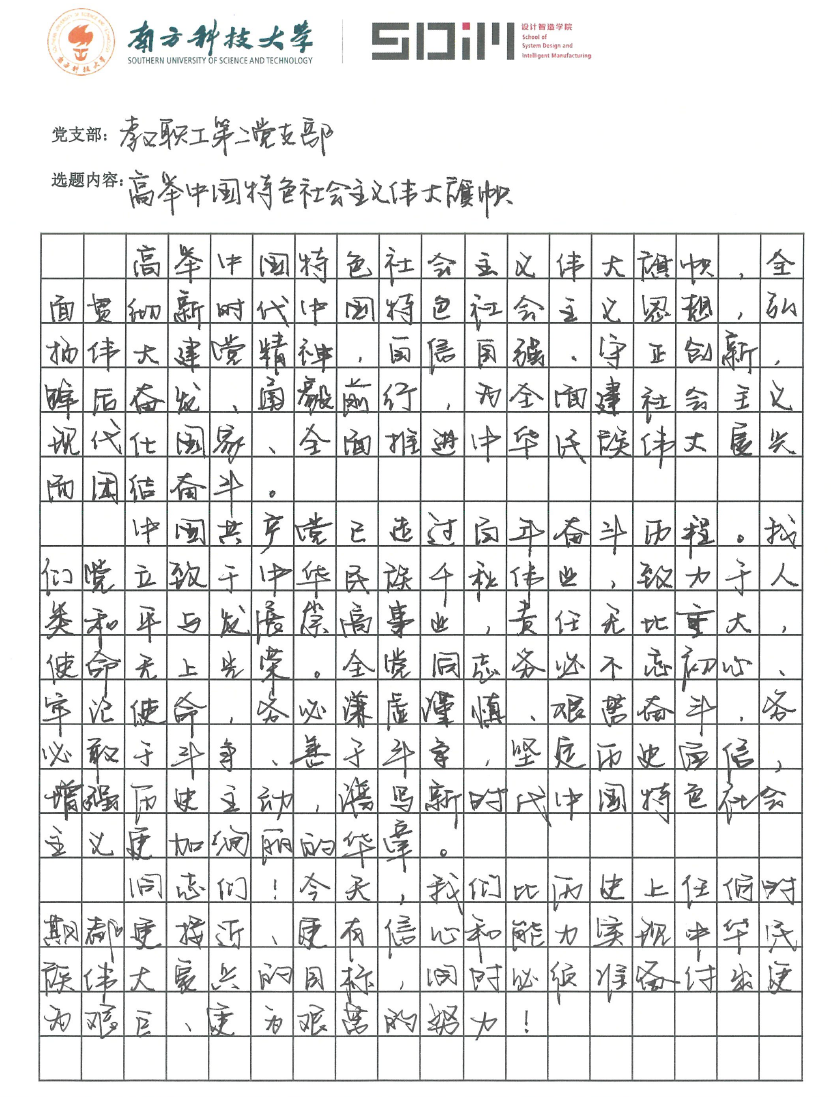 南方科技大学
SOUTHERN UNIVERSITY OF SCIENCE AND TECHNOLOGY
SDIM
设计智造学院
School of
System Design and
Intelligent Manufacturing
党支部：教职工第二党支部
选题内容：高举中国特色社会主义伟大旗帜
高举中国特色社会主义伟大旗帜，全
面贯彻新时代中国特色社会主义思想，弘
扬伟大建党精神，自信自强、守正创新，
踔厉奋发、勇毅前行，为全面建社会主义
现代化国家、全面推进中华民族伟大复兴
而团结奋斗。
中国共产党已走过百年奋斗历程。我
们党立致于中华民族千秋伟业，致力于人
类和平与发展崇高事业，责任无比重大，
使命无上光荣。全党同志务必不忘初心、
牢记使命，务必谦虚谨慎、艰苦奋斗，务
必敢于斗争、善于斗争，坚定历史自信，
增强历史主动，谱写新时代中国特色社会
主义更加绚丽的华章。
同志们！今天，我们比历史上任何时
期都更接近、更有信心和能力实现中华民
族伟大复兴的目标，同时必须准备付出更
为艰巨、更为艰苦的努力！